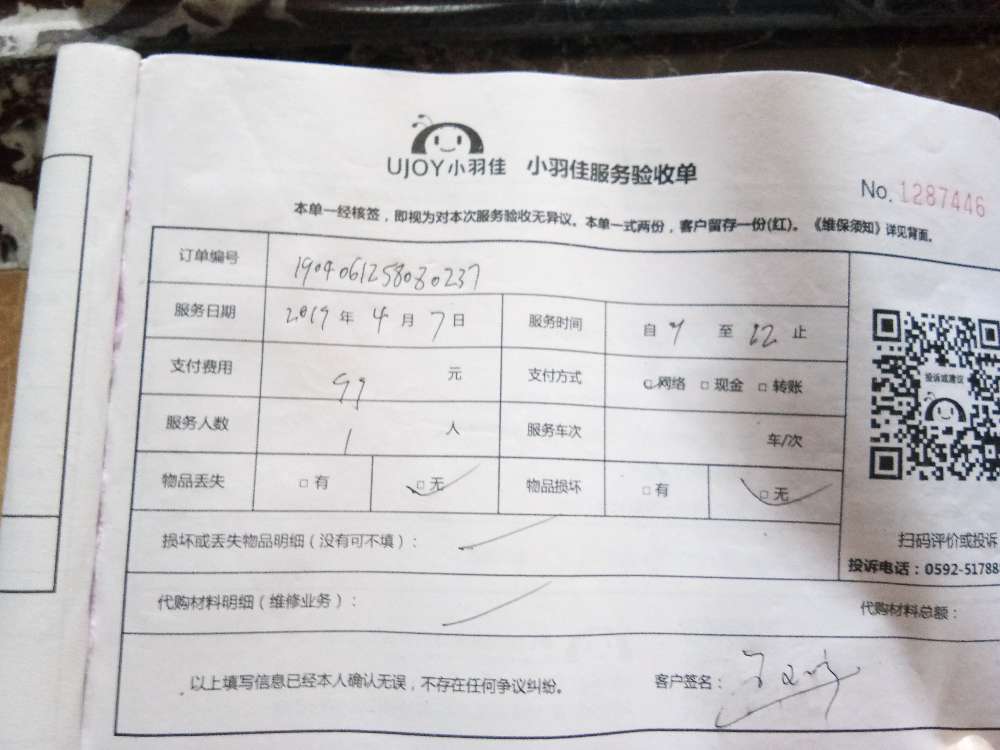 UJOY小羽佳 小羽佳服务验收单
No. 1287446
本单一经核签，即视为对本次服务验收无异议。本单一式两份，客户留存一份(红)。《维保须知》详见背面。
订单编号 1904061258080237
服务日期 2019 年 4 月 7 日 服务时间 自 至 12 止
支付费用 99 元 支付方式 □网络 □现金 □转账
服务人数 1 人 服务车次 车/次
物品丢失 □有 □无 物品损坏 □有 □无
投诉或建议
损坏或丢失物品明细（没有可不填）：
扫码评价或投诉
投诉电话：0592-51788
代购材料明细（维修业务）：
代购材料总额：
以上填写信息已经本人确认无误，不存在任何争议纠纷。 客户签名：